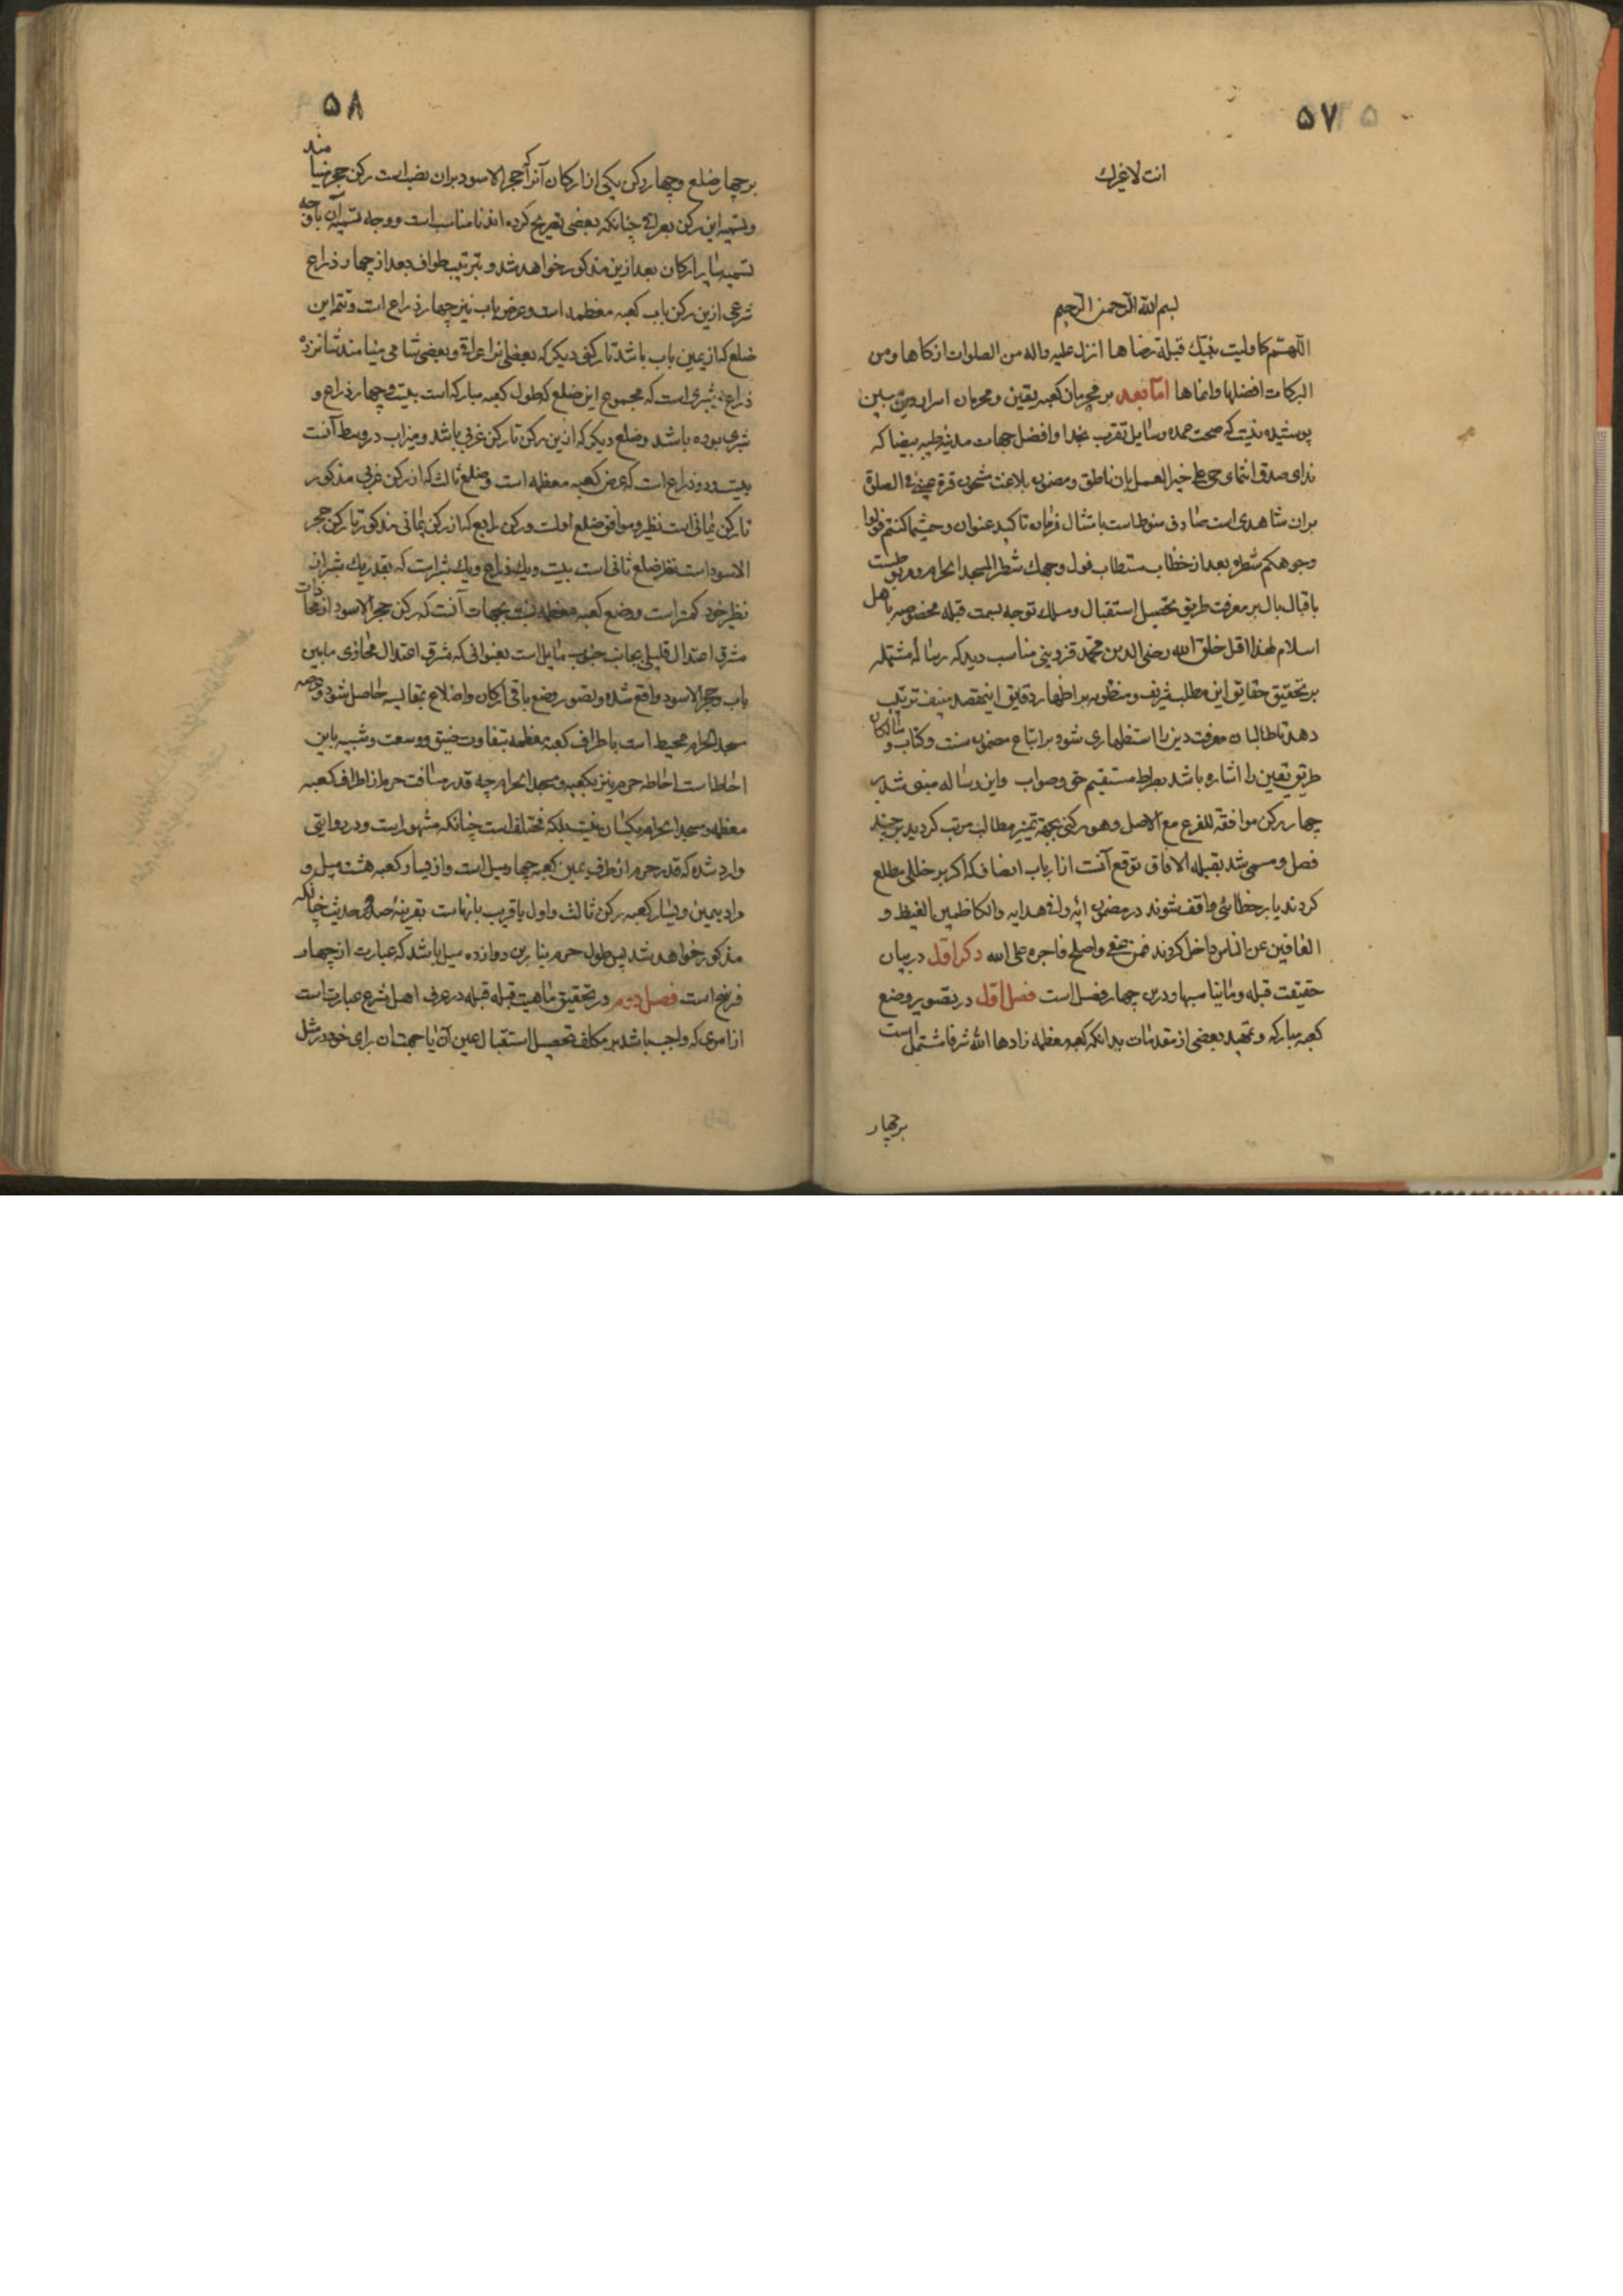 ۵۷
انت لا غیرك
بسم الله الرحمن الرحیم
اللهم کما ولیت نبیك قبلة ترضاها انزل علیه واله من الصلوات ازکاها ومن
البرکات افضلها وانماها اما بعد بر محرمان کعبه یقین و محرمان اسرار دین مبین
پوشیده نیست که صحت عمده وسایل تقرب بخدا وافضل جهات مدینه طیبه بیضا که
ندای صدق انتمای حی علی خیر العمل بان ناطق ومضمون بلاغت مشحون قرة عینی فی الصلوة
بران شاهدی است صادق منوط است بامتثال فرمان تاکید عنوان وحیثما کنتم فولوا
وجوهکم شطره بعد از خطاب مستطاب فول وجهك شطر المسجد الحرام و مربوطست
باقبال بال بر معرفت طریق تحصیل استقبال وسلك توجه بسمت قبله مخصوصه باهل
اسلام لهذا اقل خلق الله رضی الدین محمد قزوینی مناسب دید که رساله مشتمله
بر تحقیق حقایق این مطلب شریف ومنظویه بر اظهار دقایق اینمقصد منیف ترتیب
دهد تا طالبان معرفت دین را استظهاری شود بر اتباع مضمون سنت وکتاب و سالکان
طریق یقین را اشاره باشد بصراط مستقیم حق وصواب واین رساله مبنی شد بر
چهار رکن موافقة للفرع مع الاصل وهر رکنی بجهة تمیز مطالب مرتب کردید بر چند
فصل ومسمی شد بقبله الافاق توقع آنست از ارباب انصاف که اکر بر خللی مطلع
کردند یا بر خطائی واقف شوند در مضمون ایه وافی هدایه والکاظمین الغیظ و
العافین عن الناس داخل کردند فمن عفی واصلح فاجره علی الله رکن اول در بیان
حقیقت قبله وما یناسبها ودرین چهار فصل است فصل اول در تصویر وضع
کعبه مبارکه وتمهید بعضی از مقدمات بدانکه کعبه معظمه زادها الله شرفا مشتمل است
بر چهار
۵۸
بر چهار ضلع وچهار رکن یکی از ارکان آنرا که حجر الاسود بران نصب است رکن حجر مینامند
وتسمیه این رکن بعراقی چنانکه بعضی تصریح کرده اند نامناسب است ووجه تسمیه آن باوجه
تسمیه سایر ارکان بعد ازین مذکور خواهد شد وبترتیب طواف بعد از چهار ذراع
شرعی ازین رکن باب کعبه معظمه است وعرض باب نیز چهار ذراع است وتتمه این
ضلع که از یمین باب باشد تا رکنی دیکر که بعضی انرا عراقی وبعضی شامی مینامند شانزده
ذراع وشبری است که مجموع این ضلع که طول کعبه مبارکه است بیست وچهار ذراع و
شبری بوده باشد وضلع دیکر که ازین رکن تا رکن غربی باشد ومیزاب در وسط آنست
بیست ودو ذراع است که عرض کعبه معظمه است وضلع ثالث که از رکن غربی مذکور
تا رکن یمانی است نظیر وموافق ضلع اولست ورکن رابع که از رکن یمانی مذکور تا رکن حجر
الاسود است نظیر ضلع ثانی است بیست ویك ذراع ویك شبر است که بقدر یك شبر از
نظیر خود کمتر است ووضع کعبه معظمه نسبت بجهات آنست که رکن حجر الاسود از محاذات
مشرق اعتدال قلیلی بجانب جنوب مایل است بعنوانی که مشرق اعتدال محاذی مابین
باب وحجر الاسود واقع شده وتصور وضع باقی ارکان واضلاع بمقایسه حاصل شود وعرصه
مسجد الحرام محیط است باطراف کعبه معظمه بتفاوت ضیق ووسعت وشبیه باین
احاطه است احاطه حرم نیز بکعبه ومسجد الحرام چه قدر مسافت حرم از اطراف کعبه
معظمه ومسجد الحرام یکسان نیست بلکه مختلف است چنانکه مشهور است ودر روایتی
وارد شده که قدر حرم از طرف یمین کعبه چهار میل است واز یسار کعبه هشت میل و
مراد بیمین ویسار کعبه رکن ثالث واول یا قریب بانهاست بقرینه صدر حدیث چنانکه
مذکور خواهد شد پس طول حرم بنابرین دوازده میل باشد که عبارت از چهار
فرسخ است فصل دویم در تحقیق ماهیت قبله قبله در عرف اهل شرع عبارت است
از امری که واجب باشد بر مکلف تحصیل استقبال عین آن یا جهت ان برای خود در مثل